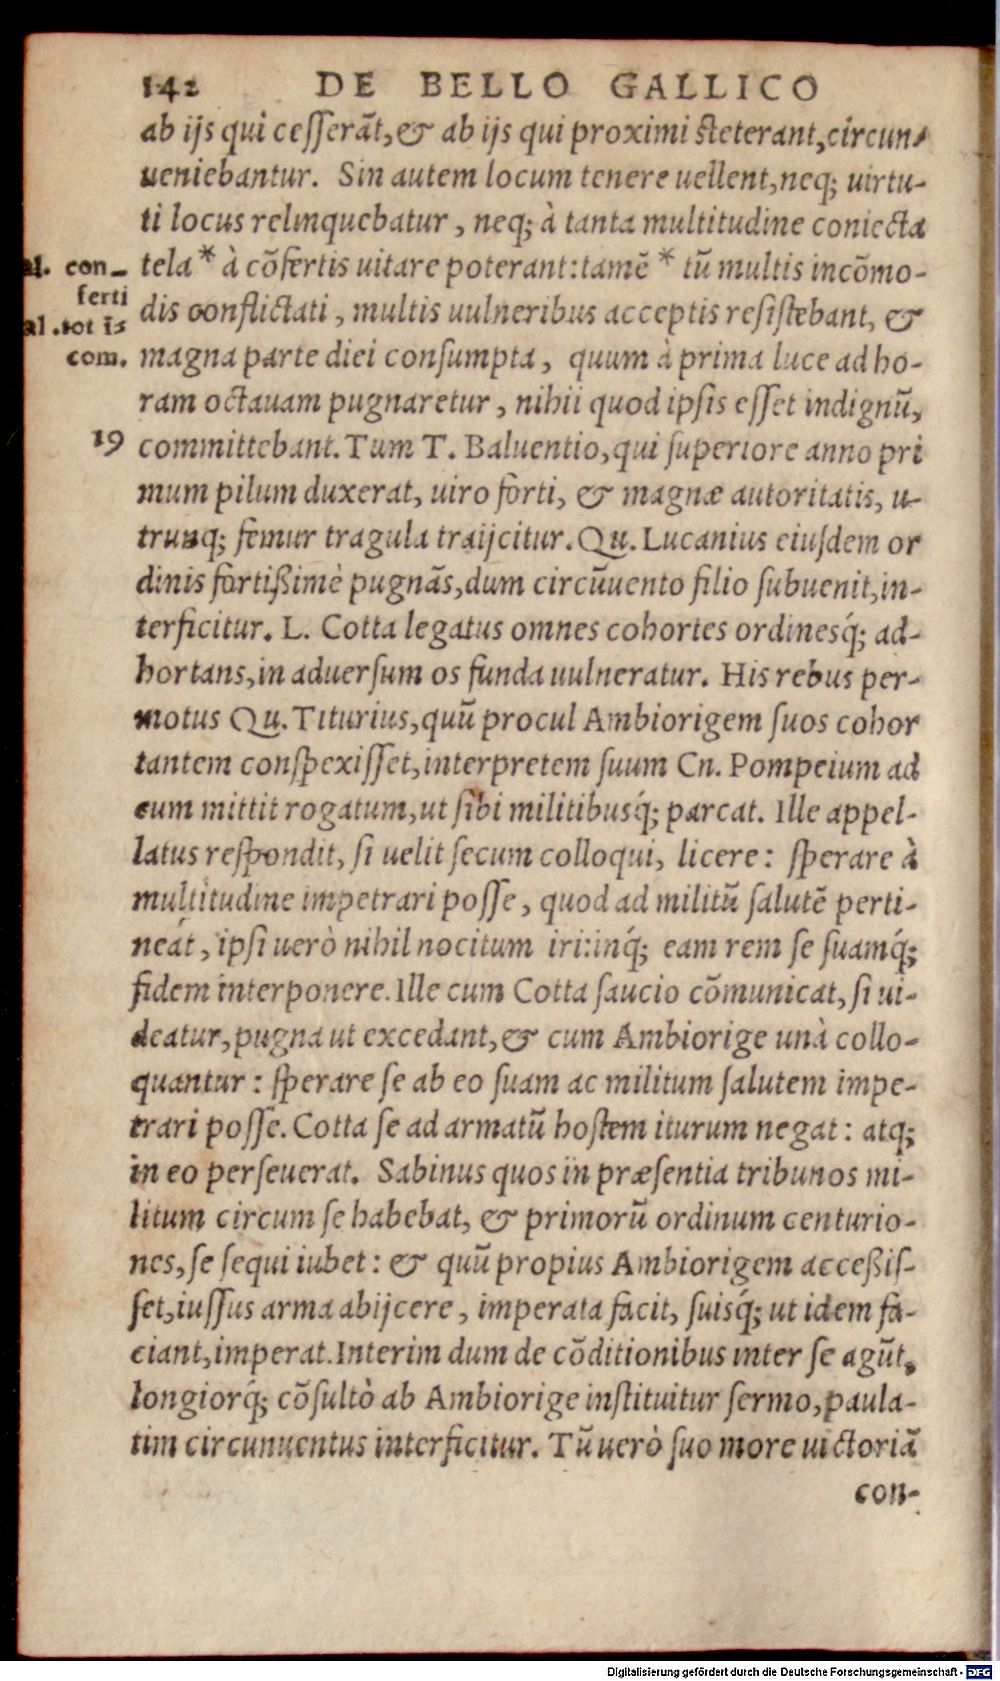 142 DE BELLO GALLICO
ab ijs qui ceſſerãt, & ab ijs qui proximi ſteterant, circun-
ueniebantur. Sin autem locum tenere uellent, neq; uirtu-
ti locus relinquebatur, neq; à tanta multitudine coniecta
al. con- tela * à cõfertis uitare poterant: tamẽ * tũ multis incõmo-
ferti
al. tot ĩs dis conflictati, multis uulneribus acceptis reſiſtebant, &
com. magna parte diei conſumpta, quum à prima luce ad ho-
ram octauam pugnaretur, nihil quod ipſis eſſet indignũ,
19 committebant. Tum T. Baluentio, qui ſuperiore anno pri
mum pilum duxerat, uiro forti, & magnæ autoritatis, u-
trunq; femur tragula traijcitur. Qu. Lucanius eiuſdem or
dinis fortißimè pugnãs, dum circũuento filio ſubuenit, in-
terficitur. L. Cotta legatus omnes cohortes ordinesq́; ad-
hortans, in aduerſum os funda uulneratur. His rebus per-
motus Qu. Titurius, quũ procul Ambiorigem ſuos cohor
tantem conſpexiſſet, interpretem ſuum Cn. Pompeium ad
eum mittit rogatum, ut ſibi militibusq́; parcat. Ille appel-
latus reſpondit, ſi uelit ſecum colloqui, licere: ſperare à
multitudine impetrari poſſe, quod ad militũ ſalutẽ perti-
neát, ipſi uerò nihil nocitum iri: inq́; eam rem ſe ſuamq́;
fidem interponere. Ille cum Cotta ſaucio cõmunicat, ſi ui-
deatur, pugna ut excedant, & cum Ambiorige unà collo-
quantur: ſperare ſe ab eo ſuam ac militum ſalutem impe-
trari poſſe. Cotta ſe ad armatũ hoſtem iturum negat: atq;
in eo perſeuerat. Sabinus quos in præſentia tribunos mi-
litum circum ſe habebat, & primorũ ordinum centurio-
nes, ſe ſequi iubet: & quũ propius Ambiorigem acceßiſ-
ſet, iuſſus arma abijcere, imperata facit, ſuisq́; ut idem fa-
ciant, imperat. Interim dum de cõditionibus inter ſe agũt,
longiorq́; cõſultò ab Ambiorige inſtituitur ſermo, paula-
tim circunuentus interficitur. Tũ uerò ſuo more uictoriã
con-
Digitalisierung gefördert durch die Deutsche Forschungsgemeinschaft - DFG